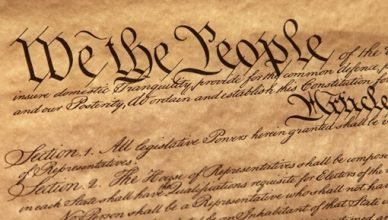 We the People of the
insure domestic Tranquility, provide for the common defence,
and our Posterity, do ordain and establish this Constitution for
Article
Section. 1. All legislative Powers herein granted shall be
of Representatives.
Section. 2. The House of Representatives shall be
in each State shall have Qualifications requisite for Electors of the
No Person shall be a Representative who shall not